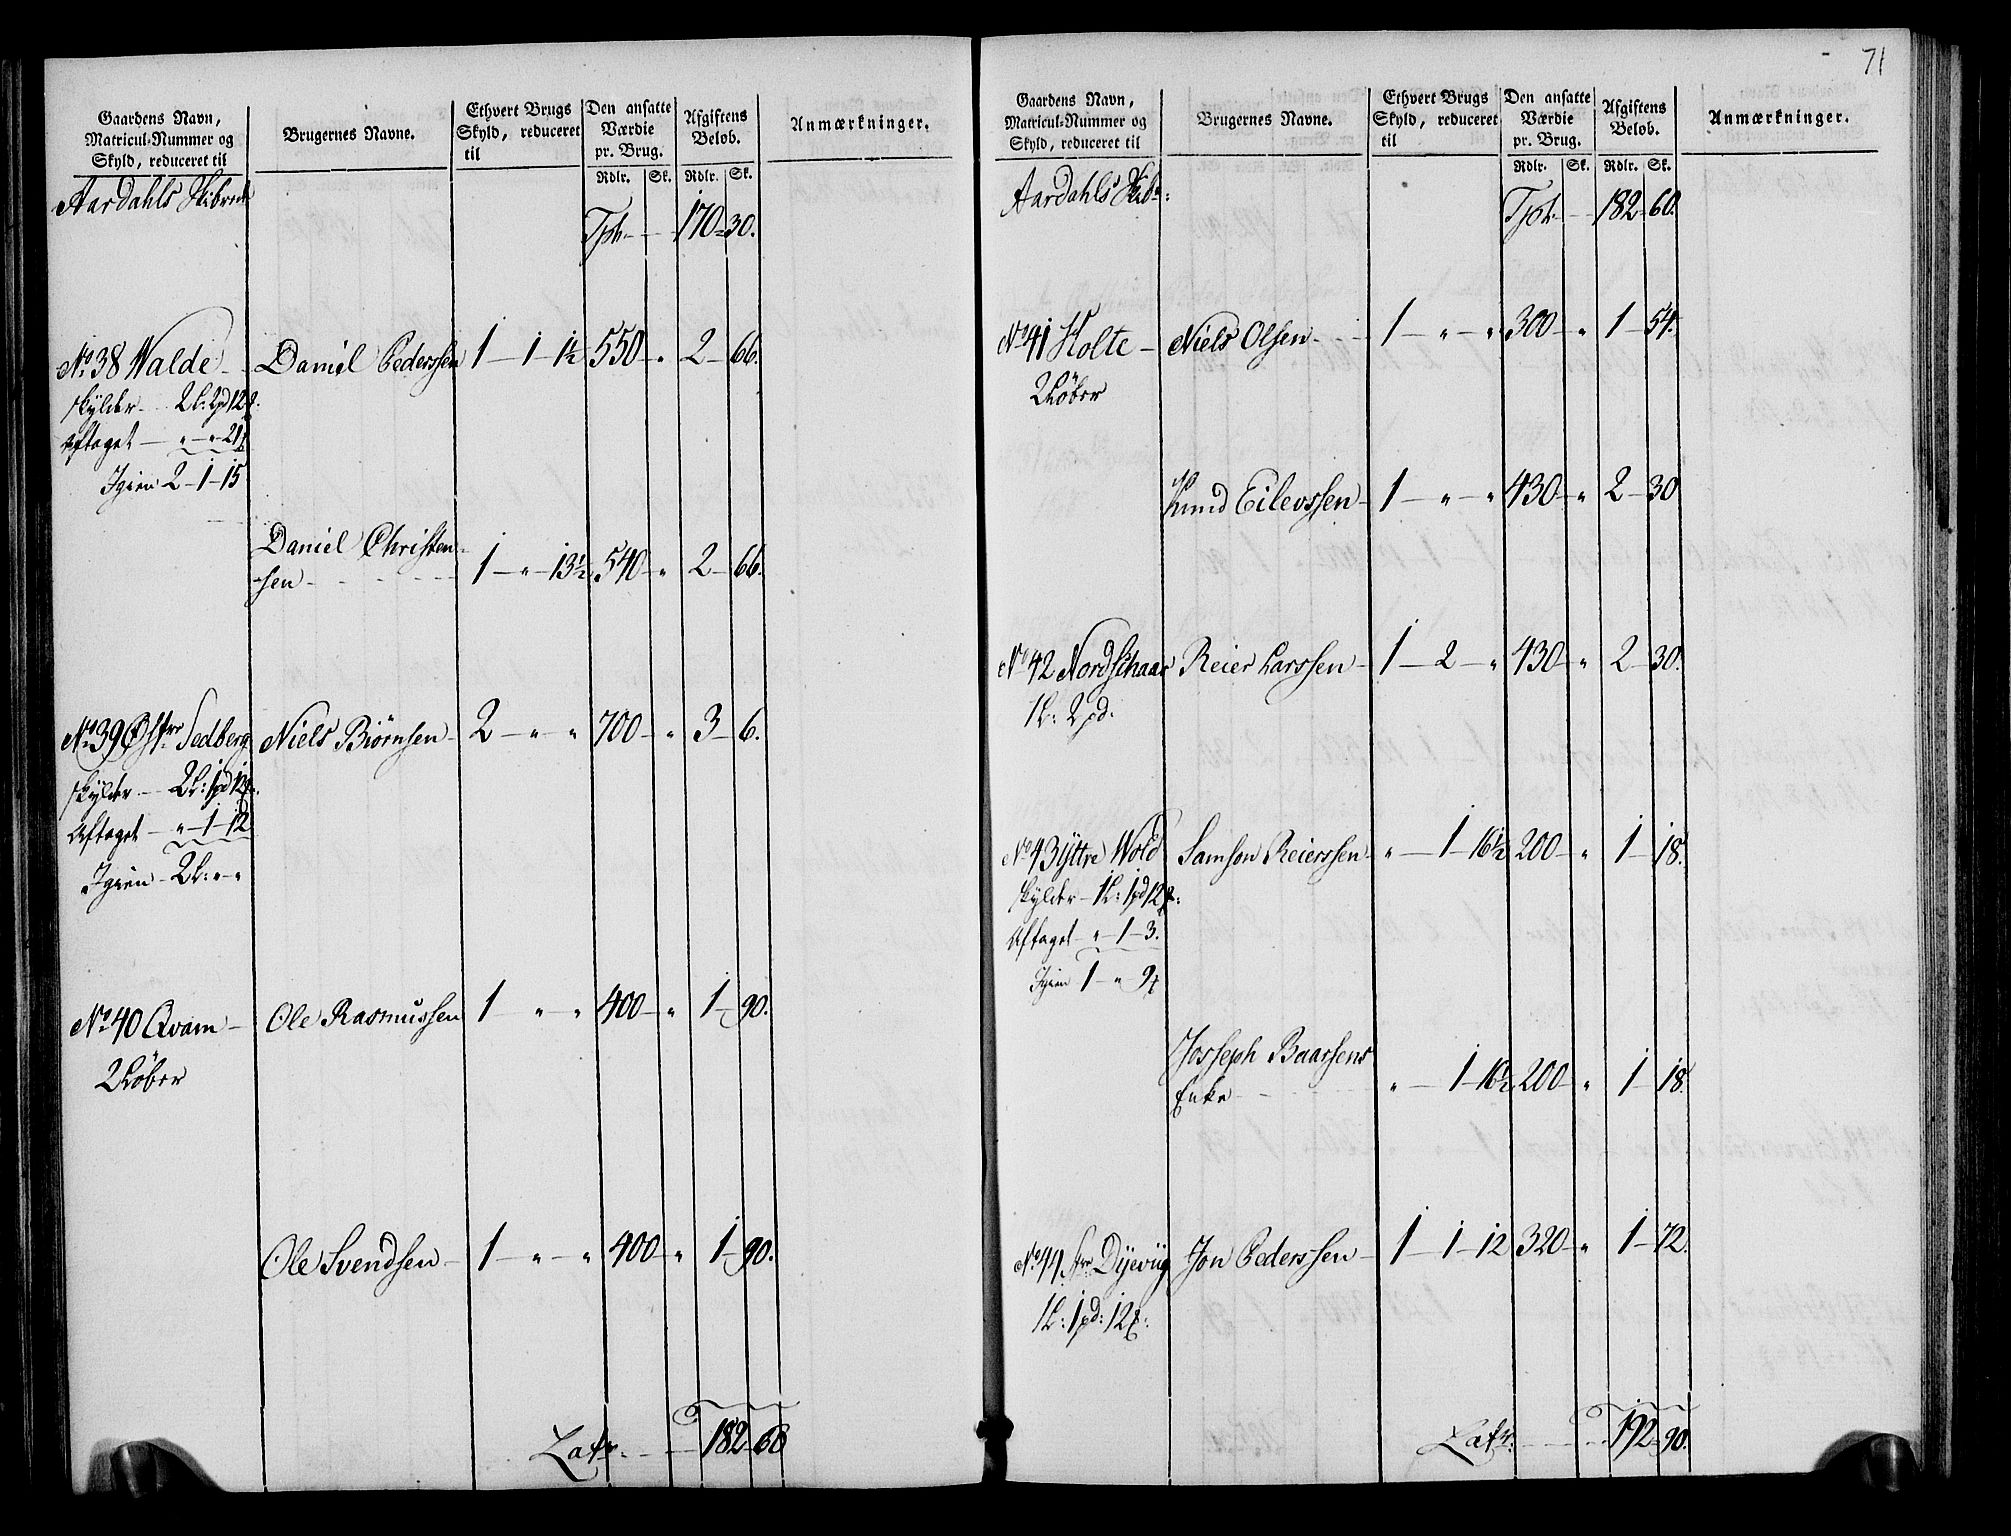 71
Gaardens Navn, Matricul-Nummer og Skyld, reduceret til
Brugernes Navne.
Ethvert Brugs Skyld, reduceret til
Den ansatte Værdie pr. Brug.
Afgiftens Beløb.
Anmærkninger.
Rdlr. Sk. Rdlr. Sk.
Aardahls Skibrede
Tpt: 170 - 30.
No 38 Walde - Daniel Pedersen 1 - 1 - 1½ 550 - " 2 - 66.
skylder 2 L: 2 pd 12 
Aftaget - " - " - 21
Igien 2 - 1 - 15
Daniel Christen-
sen - 1 - " - 13½ 540 - " 2 - 66.
No 39 Østre Sedberg Niels Biørnsen - 2 - " - " 700 - " 3 - 6.
skylder - 2 L: 1 pd 12
Aftaget - " - 1 - 12
Igien - 2 L: " - "
No 40 Qvam - Ole Rasmussen 1 " - " 400 - " 1 - 90.
2 Løber
Ole Svendsen - 1 - " - " 400 - " 1 - 90.
Latr: 182 - 60
Gaardens Navn, Matricul-Nummer og Skyld, reduceret til
Brugernes Navne.
Ethvert Brugs Skyld, reduceret til
Den ansatte Værdie pr. Brug.
Afgiftens Beløb.
Anmærkninger.
Rdlr. Sk. Rdlr. Sk.
Aardahls Skib:
Tpt: 182 - 60.
No 41 Holte - Niels Olsen - 1 - " - " 300 - " 1 - 54.
2 Løber
Knud Eilevssen - 1 - " - " 430 - " 2 - 30
No 42 Nordschaar Reier Larssen - 1 - 2 - " 430 - " 2 - 30.
1 L: 2 pd:
No 43 Yttre Wold Samson Reierssen - " - 1 - 16½ 200 - " 1 - 18.
skylder - 1 L: 1 pd 12
Aftaget - " - 1 - 3.
Igien 1 - " 9
Josseph Baarsens
Enke - " - 1 - 16½ 200 - " 1 - 18.
No 44 Dyevig Jon Pederssen - 1 - 1 - 12 320 - " 1 - 72.
1 L: 1 pd: 12
Latr: 192 - 90.